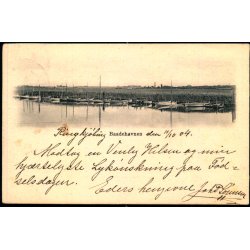 Ringkjöbing Baadehavnen den 7/10 04.
Modtag en Venlig Hilsen og min
hjærteligste Lykönskning paa Föd-
selsdagen.
Eders hengivne